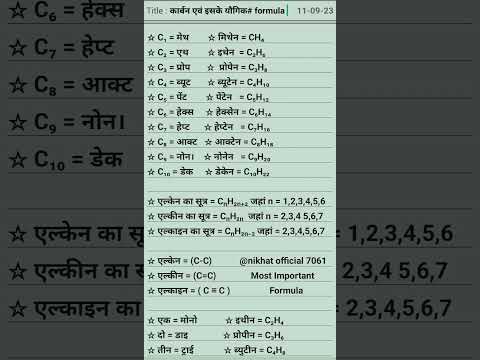 Title : कार्बन एवं इसके यौगिक# formula 11-09-23
☆ C₁ = मेथ ☆ मिथेन = CH₄
☆ C₂ = एथ ☆ इथेन = C₂H₆
☆ C₃ = प्रोप ☆ प्रोपेन = C₃H₈
☆ C₄ = ब्यूट ☆ ब्यूटेन = C₄H₁₀
☆ C₅ = पेंट ☆ पेंटेन = C₅H₁₂
☆ C₆ = हेक्स ☆ हेक्सेन = C₆H₁₄
☆ C₇ = हेप्ट ☆ हेप्टेन = C₇H₁₆
☆ C₈ = आक्ट ☆ आक्टेन = C₈H₁₈
☆ C₉ = नोन। ☆ नोनेन = C₉H₂₀
☆ C₁₀ = डेक ☆ डेकेन = C₁₀H₂₂
☆ एल्केन का सूत्र = CₙH₂ₙ₊₂ जहां n = 1,2,3,4,5,6
☆ एल्कीन का सूत्र = CₙH₂ₙ जहां n = 2,3,4 5,6,7
☆ एल्काइन का सूत्र = CₙH₂ₙ₋₂ जहां n = 2,3,4,5,6,7
☆ एल्केन = (C-C) @nikhat official 7061
☆ एल्कीन = (C=C) Most Important
☆ एल्काइन = ( C ≡ C ) Formula
☆ एक = मोनो ☆ इथीन = C₂H₄
☆ दो = डाइ ☆ प्रोपीन = C₃H₆
☆ तीन = ट्राई ☆ ब्युटीन = C₄H₈